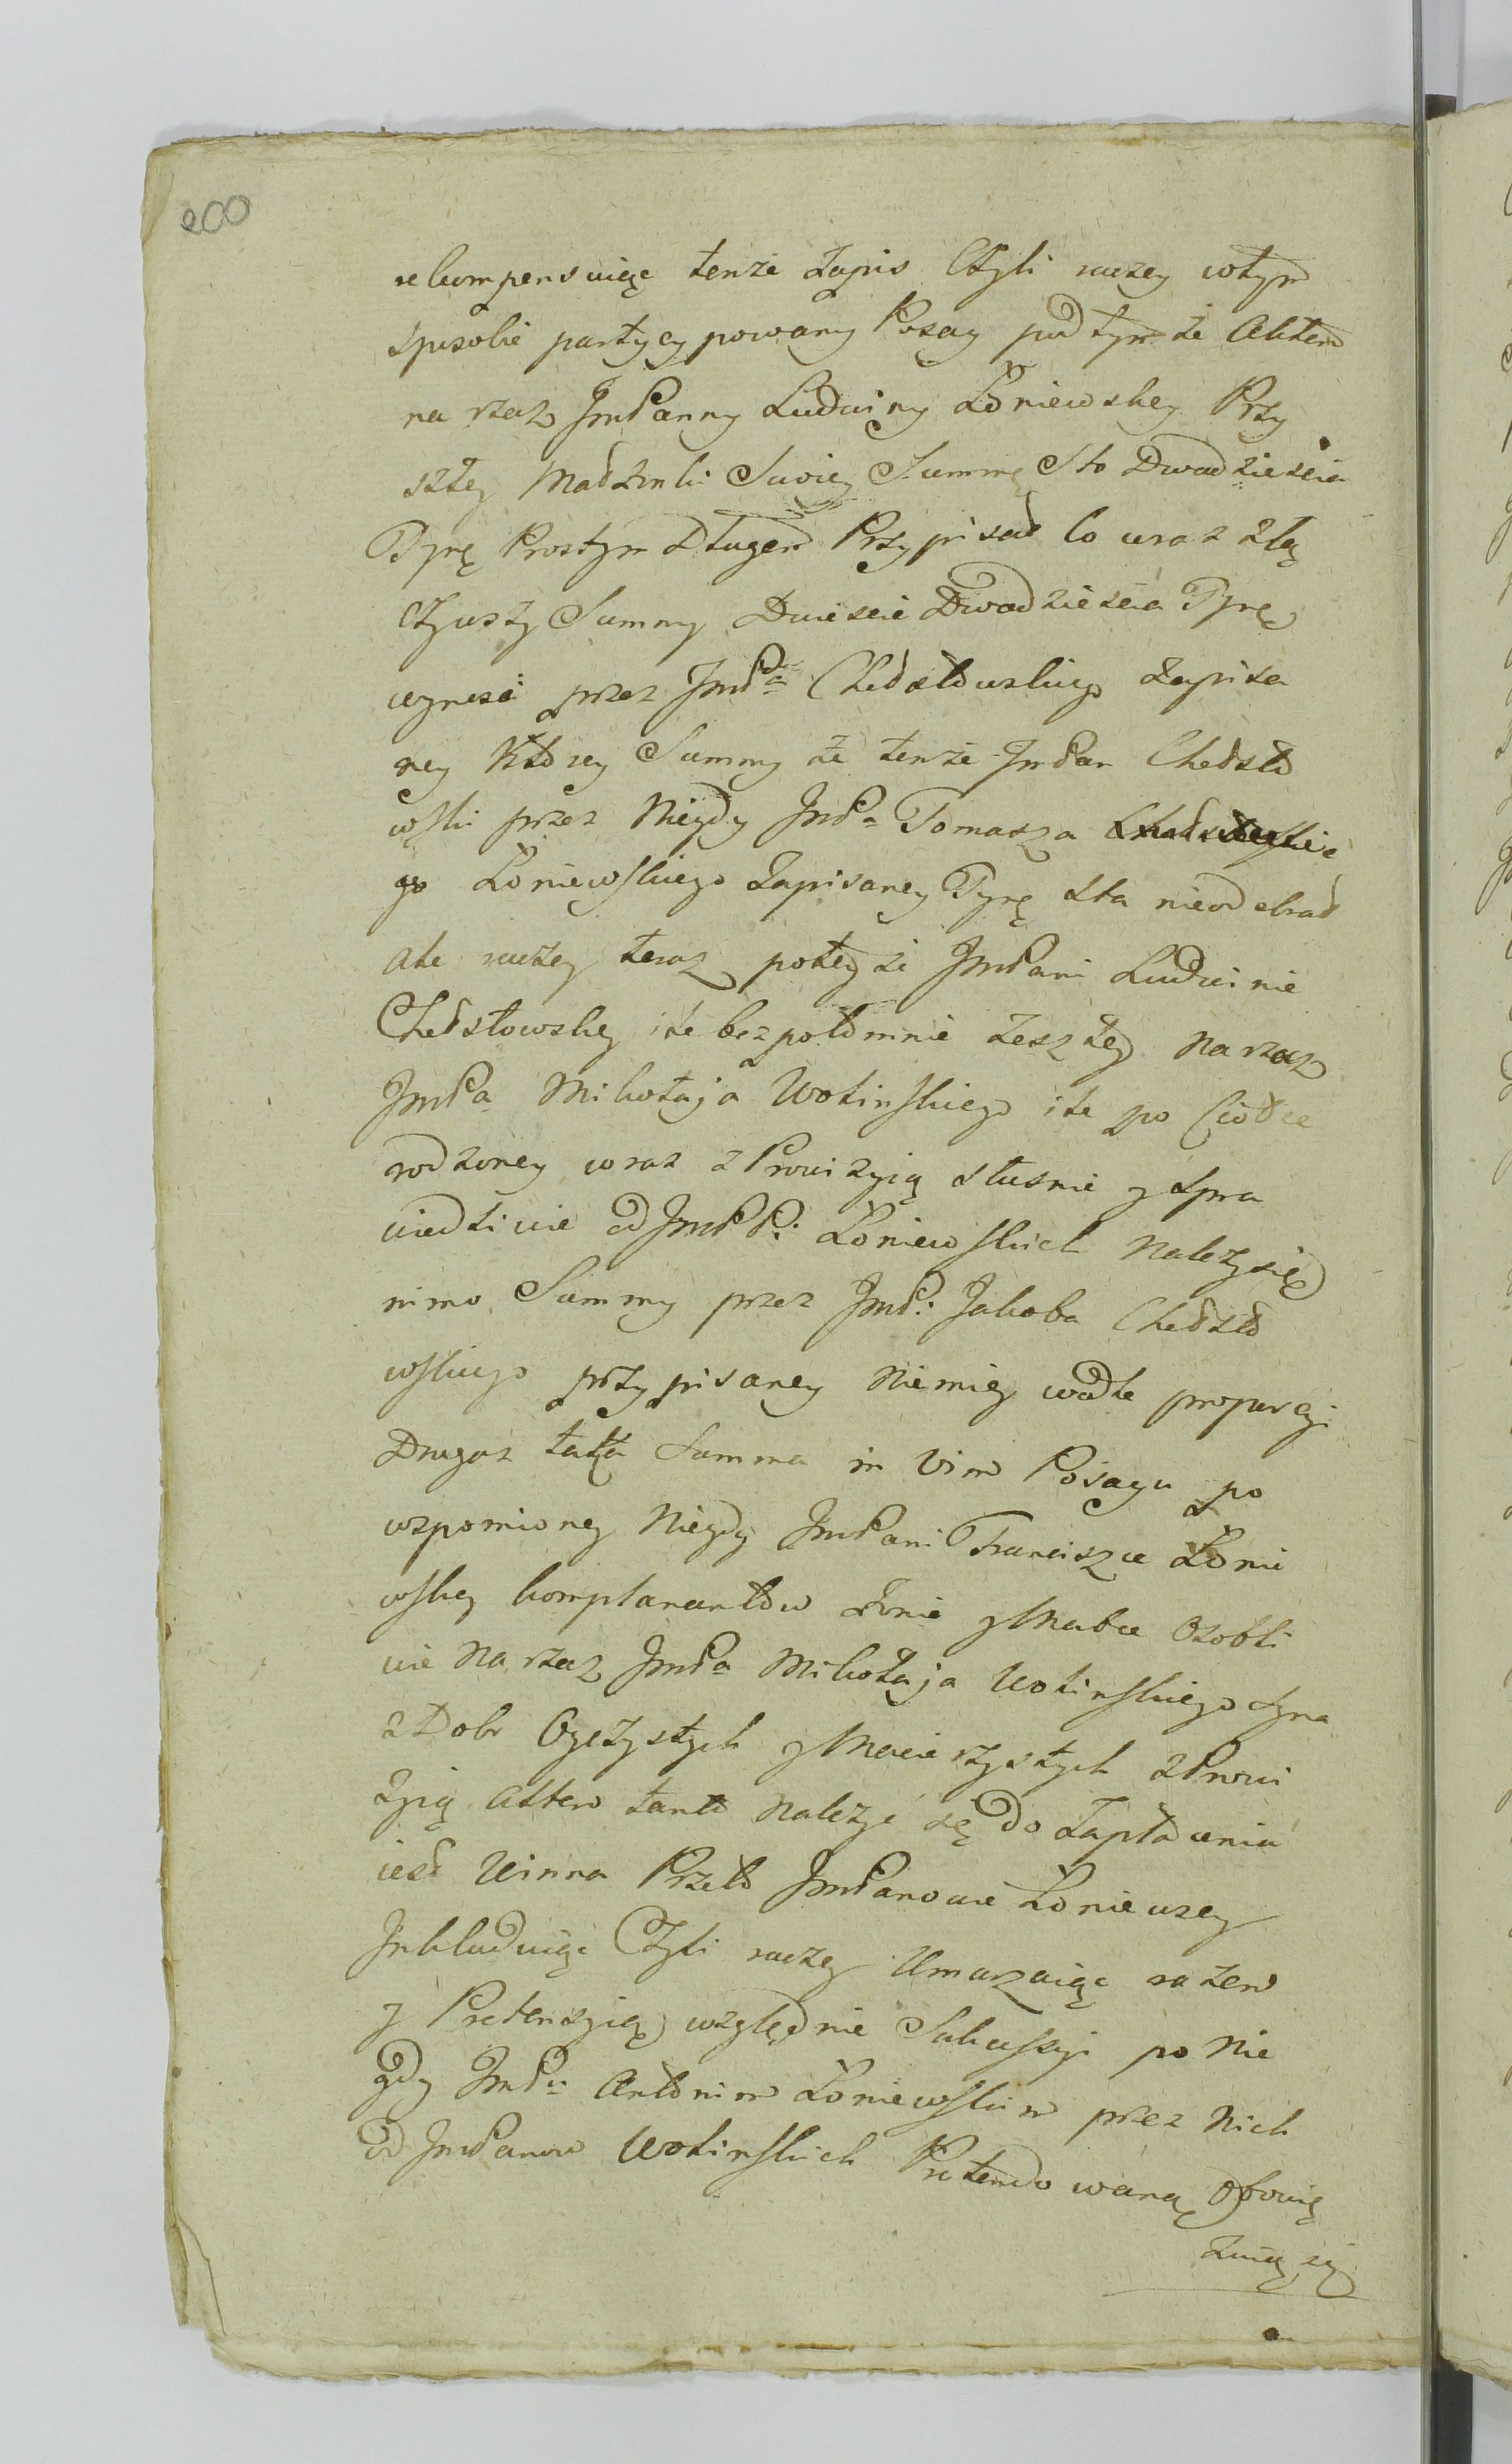 200
rekompensuiąc tenże Zapis Czyli raczey wtym
sposobie partycypowany Posag pod tymże Aktem
na rzecz JmPanny Ludwiny Łoniewskey Przy
szłey Małżonki Swoiey Summę Sto Dwadzieścia
Tynę Prostym Długem Przypisał Co wraz ztą
Czynszy Summy Dwieście Dwadzieścia Tynę
wynosi przez JmPa Chodstowskiego Zapisa
ney Którey Summy że tenże JmPan Chodsto
wski przez Niegdy JmPa Tomasza
go Łoniewskiego Zapisaney Tynę Sta nieodebrał
ale raczey teraz poteyże JmPani Ludwinie
Chodstowskiey iże bezpotomnie Zeszłey na rzecz
JmPa Mikołaja Wolinskiego iże po Ciotce
rodzoney wraz z Prowizyią słusnie y Spra
wiedliwie od JmPP: Łoniewskich Należy się
nimo Summy przez JmP: Jakoba Chodsto
wskiego przypisaney Niemiey wedle proporcyi
Drugaz taka Summa in Vim Posagu po
wspomioney Niegdy JmPani Franciszce Łonie
wskiey komplanantow Żonie y Matce Osobli
wie na rzecz JmPa Mikołaja Wolinskiego Syna
z Dobr Oyczystych y Macierzystych zProwi
zyią aktem tanto należeć się do Zapłacenia
iest Winna Przeto JmPanowie Łoniewscy
Inkluduiąc Czyli raczey Umarzaiąc razem
y Pretensyią względnie Sukcessyi po Nie
gdy JmPu Antonim Łoniewskim przez Nich
od JmPanow Wolinskich Pretendowaną Obowią
zuią się